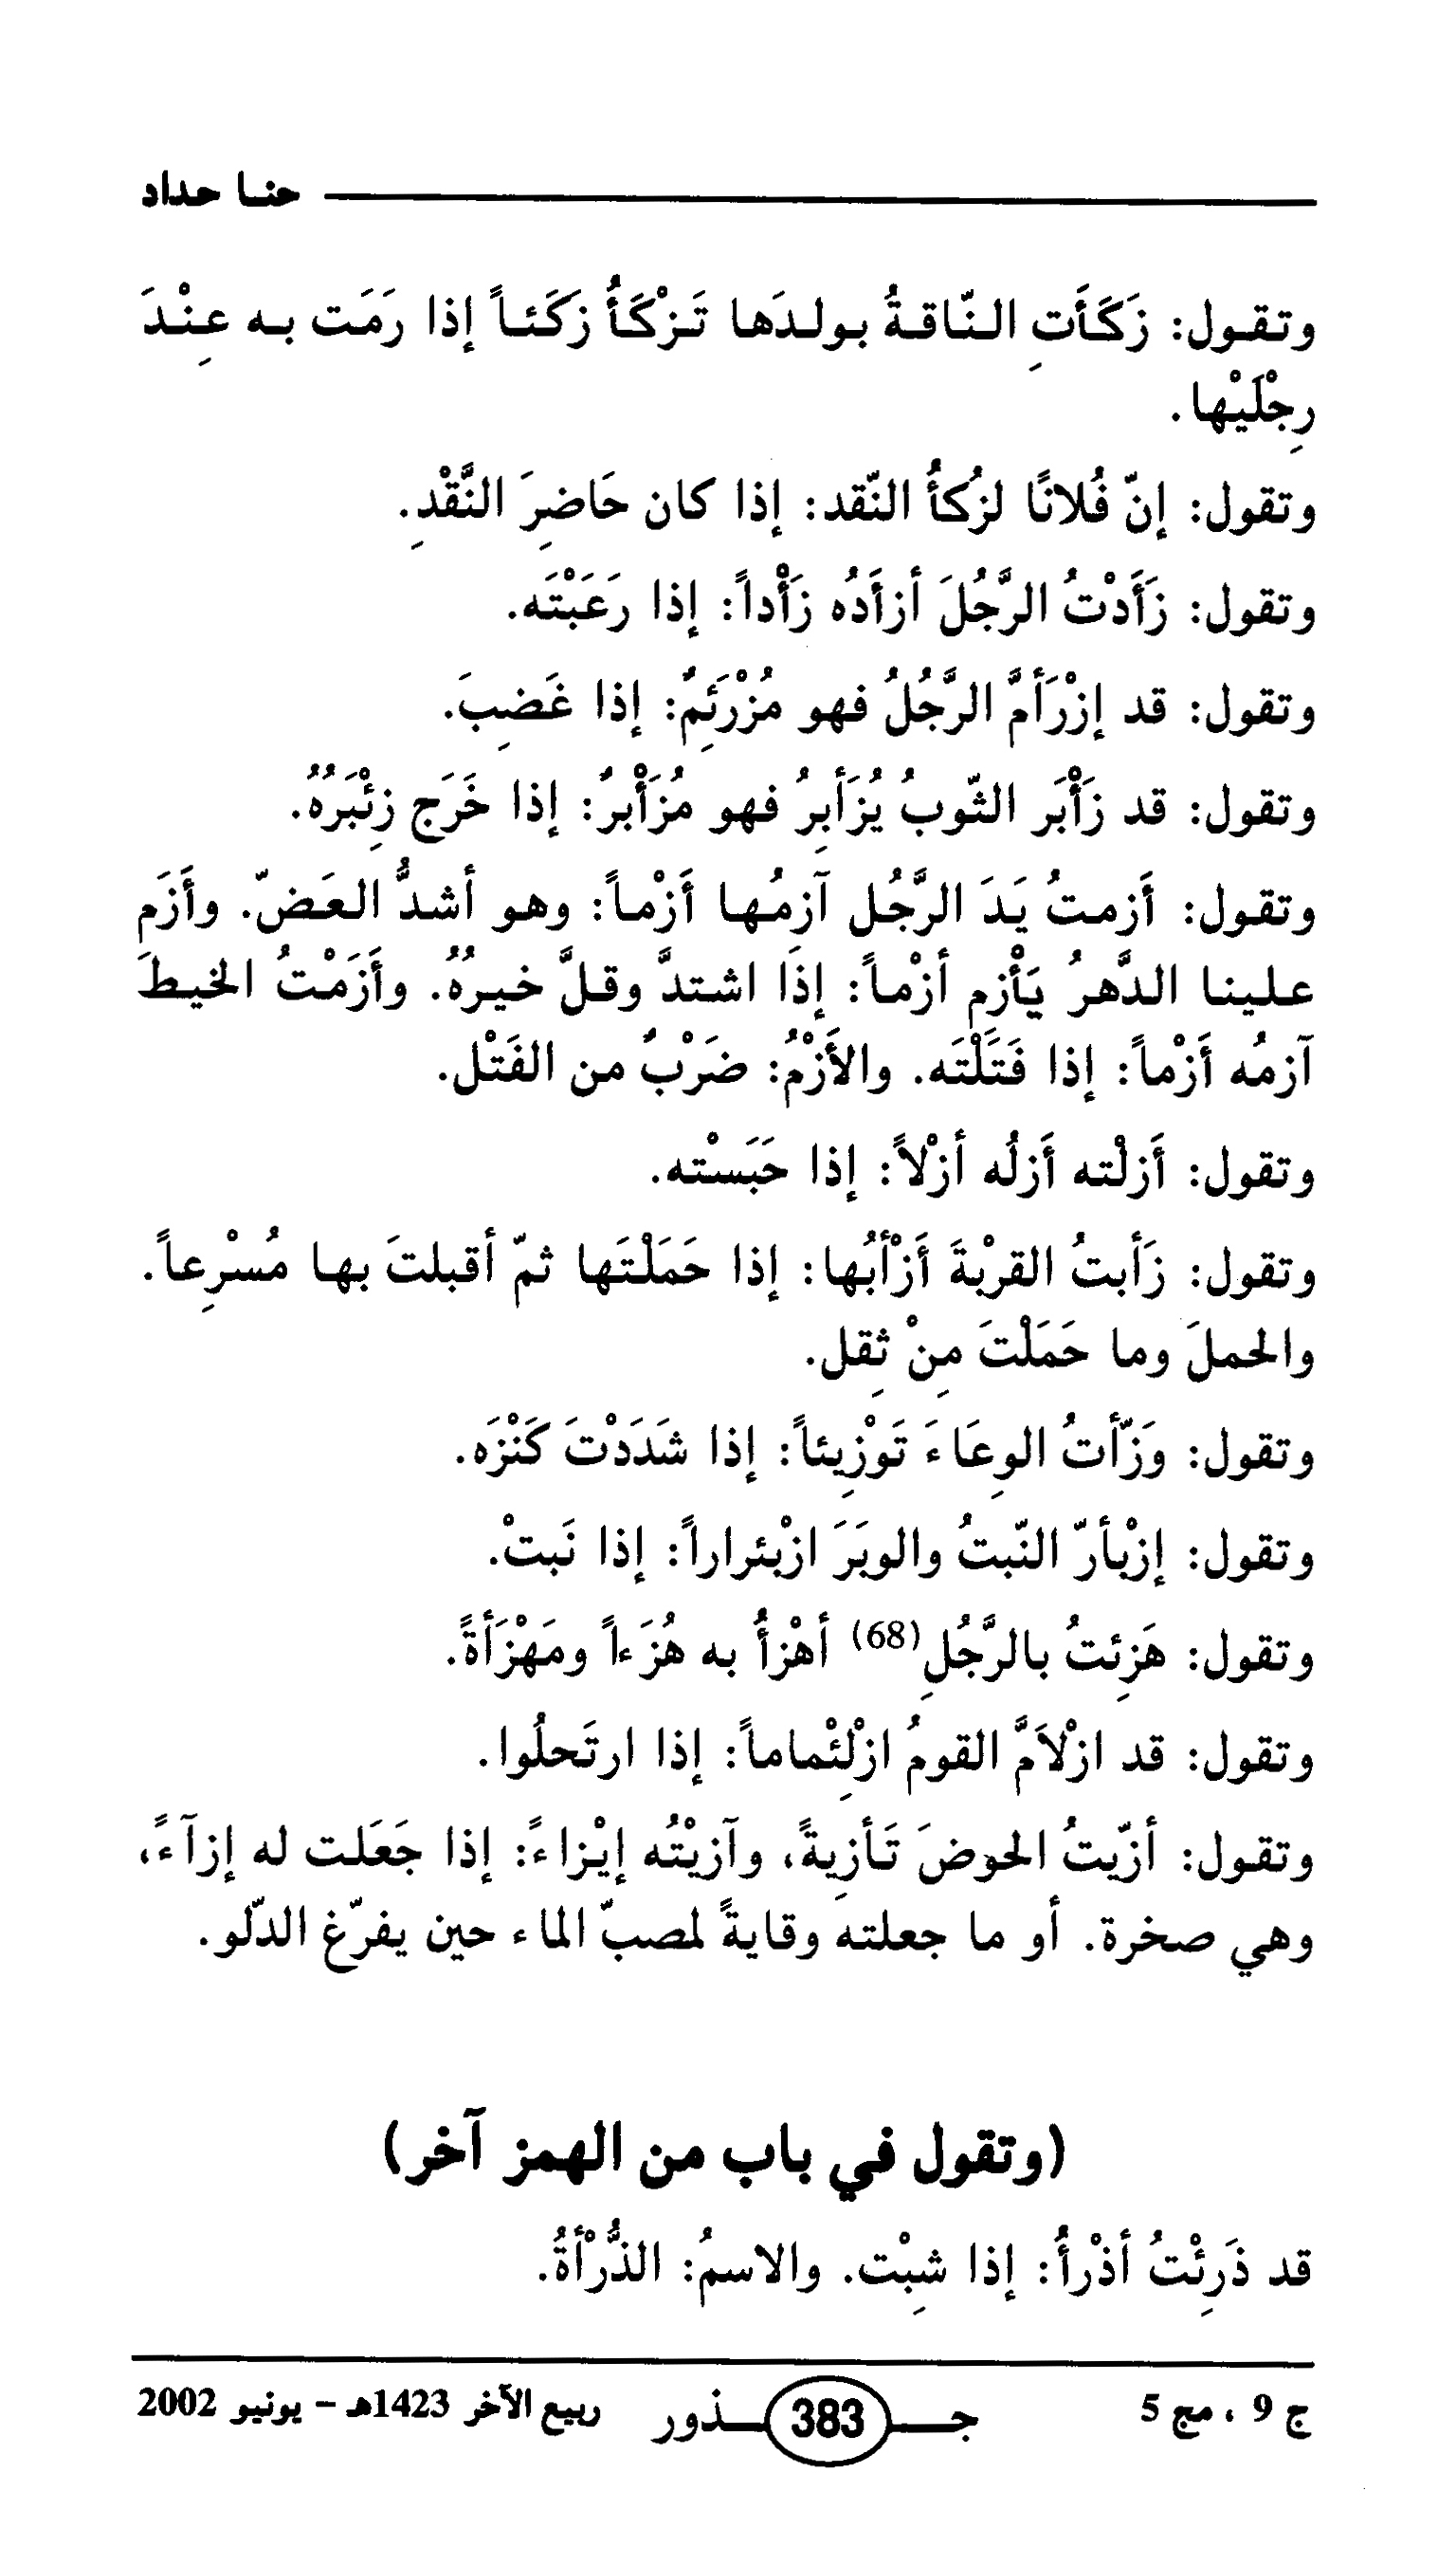 حنـا حداد
وتقـول: زَكَأَتِ النّاقـةُ بـولـدَها تَـزْكَأُ زَكَئـاً إذا رَمَت بـه عِنْـدَ
رِجْلَيْها.
وتقول: إنّ فُلانًا لزُكأُ النّقد: إذا كان حَاضِرَ النَّقْدِ.
وتقول: زَأَدْتُ الرَّجُلَ أزأَدُه زَأْداً: إذا رَعَبْتَه.
وتقول: قد إزْرَأمَّ الرَّجُلُ فهو مُزْرَئِمٌ: إذا غَضِبَ.
وتقول: قد زَأْبَر الثّوبُ يُزَأبِرُ فهو مُزَأْبرٌ: إذا خَرَج زِئْبَرُهُ.
وتقول: أَزمتُ يَدَ الرَّجُل آزمُها أَزْماً: وهو أشدُّ العَضّ. وأَزَم
علينا الدَّهرُ يَأْزم أزْماً: إذَا اشتدَّ وقلَّ خيرُهُ. وأَزَمْتُ الخيطَ
آزمُه أَزْماً: إذا فَتَلْتَه. والأَزْمُ: ضَرْبٌ من الفَتْل.
وتقول: أَزلْته أَزلُه أزْلاً: إذا حَبَسْته.
وتقول: زَأبتُ القرْبةَ أَزْأبُها: إذا حَمَلْتَها ثمّ أقبلتَ بها مُسْرِعاً.
والحملَ وما حَمَلْتَ مِنْ ثِقل.
وتقول: وَزّأتُ الوِعَاءَ تَوْزِيئاً: إذا شَدَدْتَ كَنْزَه.
وتقول: إزْبأرّ النّبتُ والوبَرَ ازْبئراراً: إذا نَبتْ.
وتقول: هَزِئتُ بالرَّجُلِ(68) أهْزأُ به هُزَءاً ومَهْزَأةً.
وتقول: قد ازْلاَمَّ القومُ ازْلِئْماماً: إذا ارتَحلُوا.
وتقول: أزّيتُ الحوضَ تَأزِيةً، وآزيْتُه إيْزاءً: إذا جَعَلت له إزآءً،
وهي صخرة. أو ما جعلته وقايةً لمصبّ الماء حين يفرّغ الدّلو.
(وتقول في باب من الهمز آخر)
قد ذَرِئْتُ أذْرأُ: إذا شِبْت. والاسمُ: الذُّرْأةُ.
ج 9 ، مج 5 جـــذور 383 ربيع الآخر 1423هـ - يونيو 2002